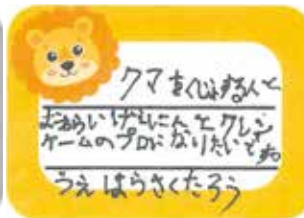 クマをくじょする人と
おわらいげいにんとクレーン
ゲームのプロになりたいです。
うえはらさくたろう